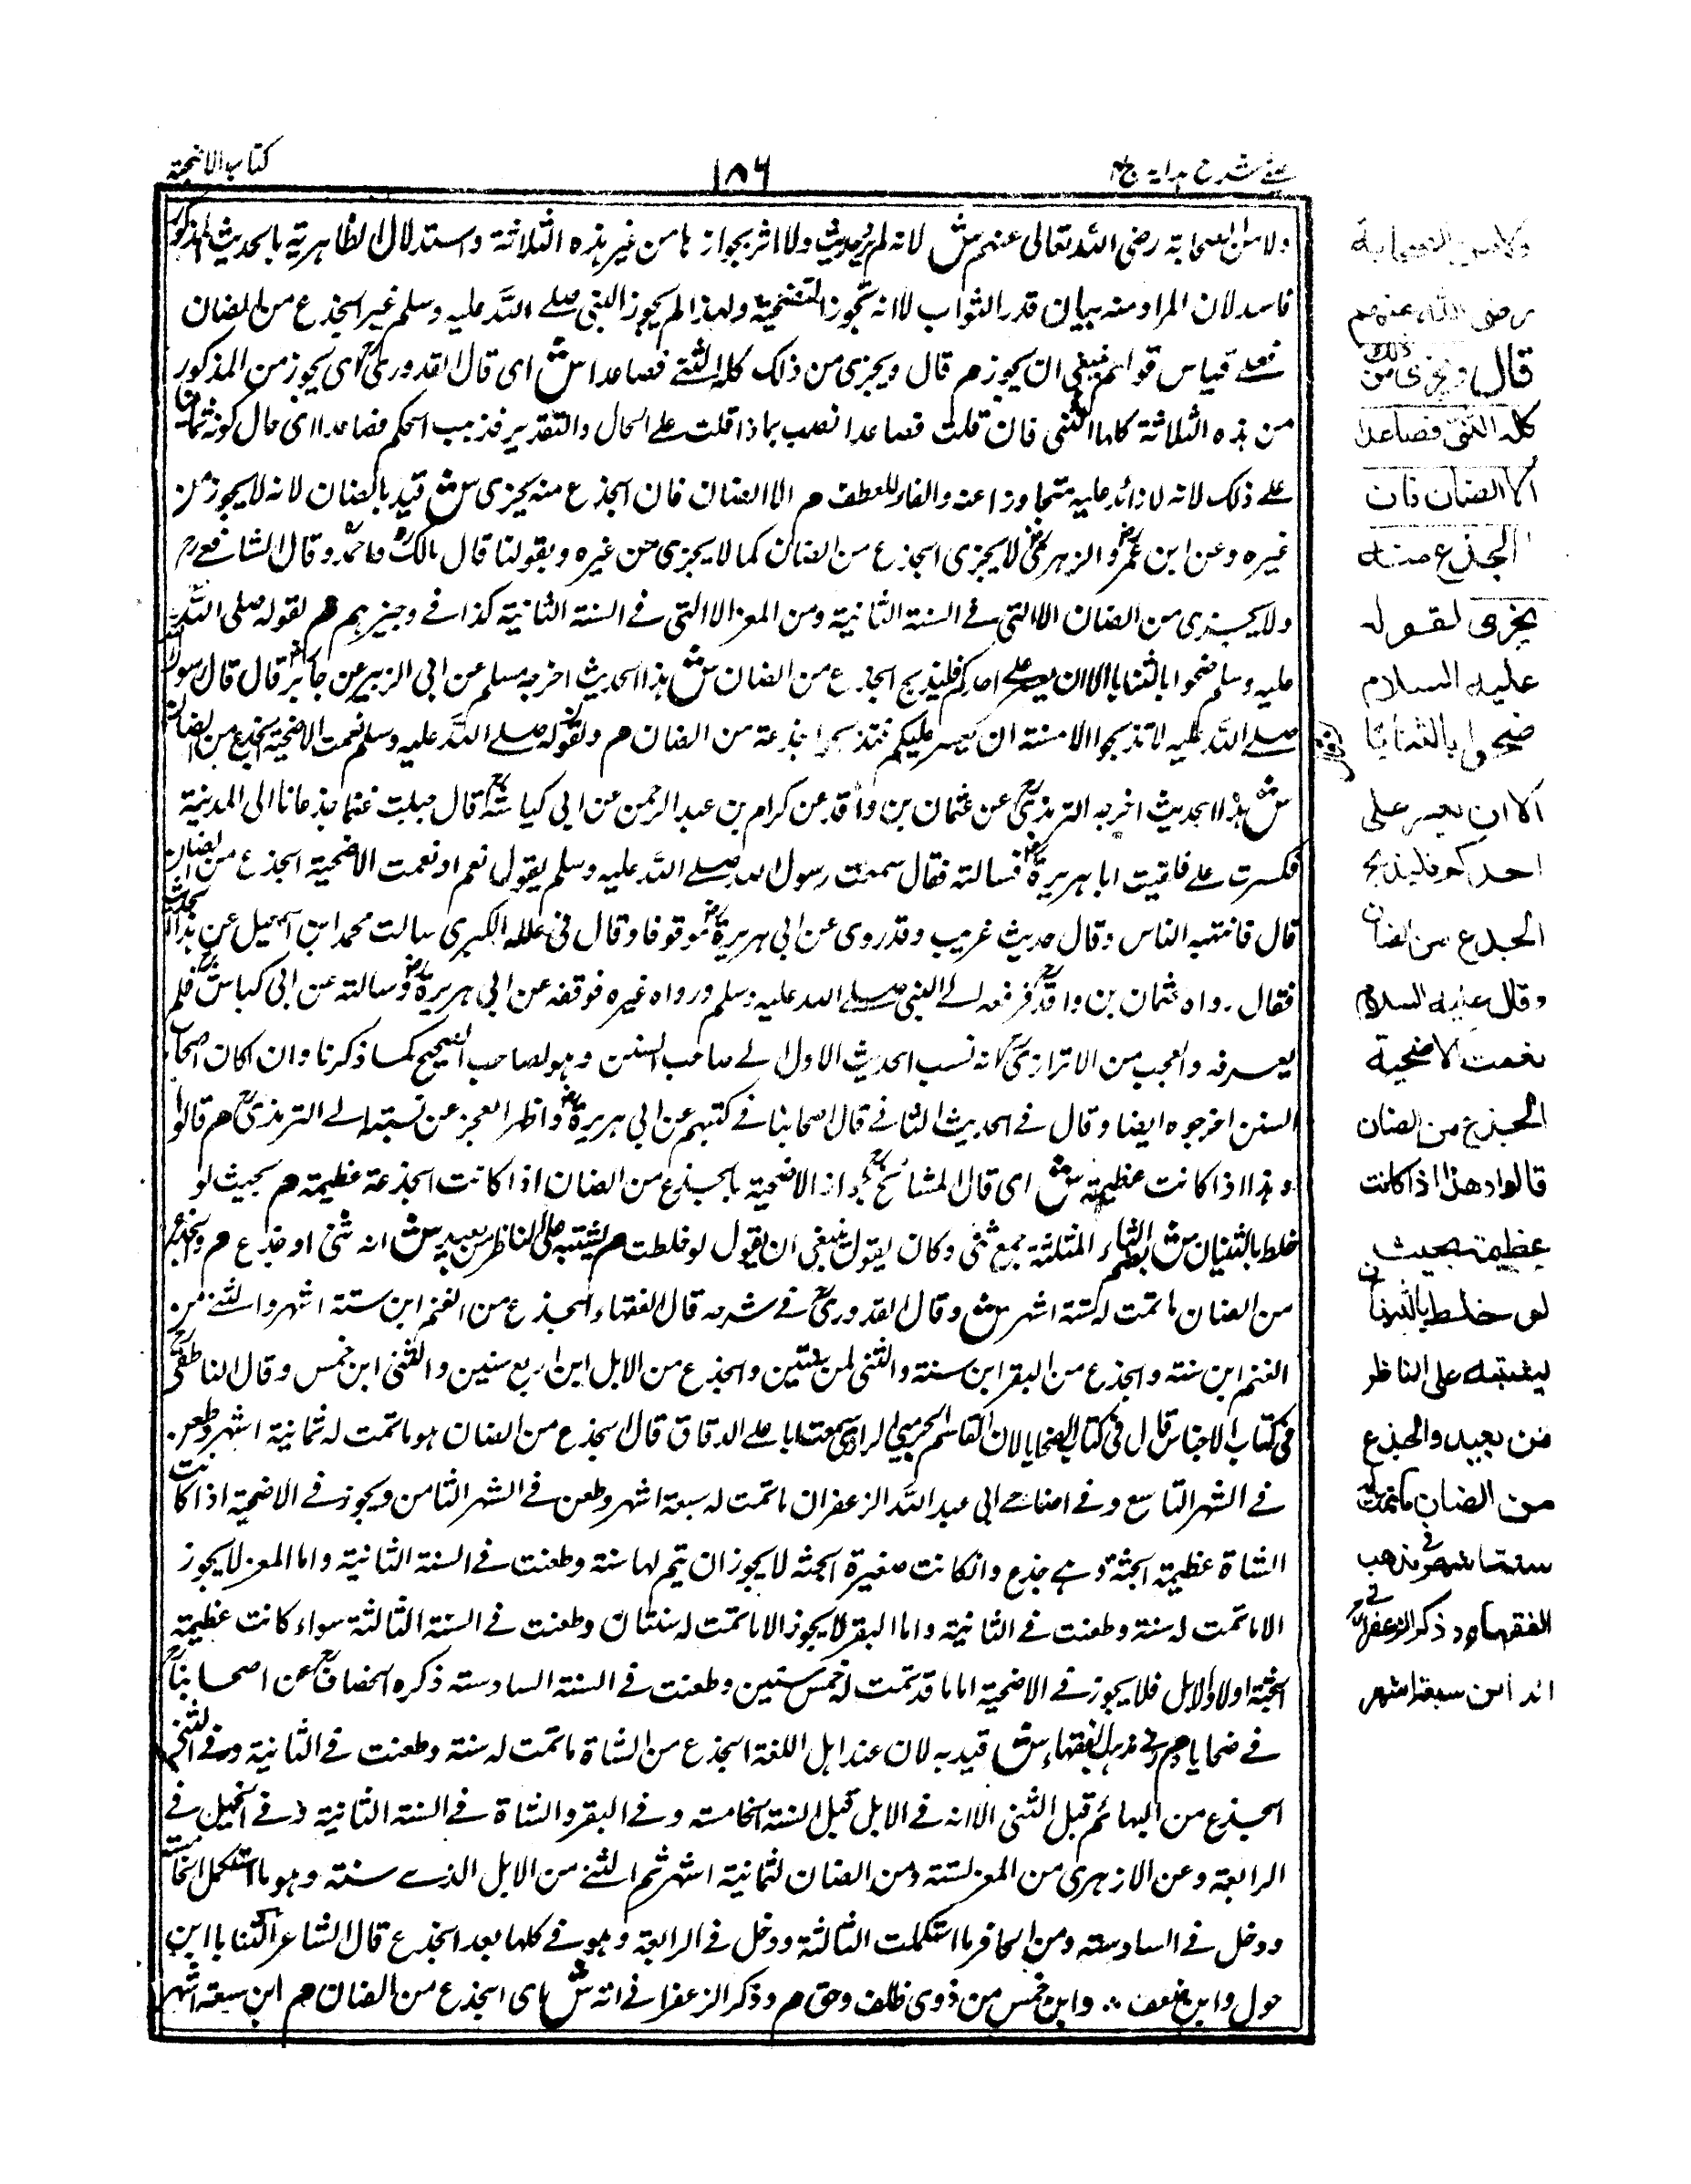 كتاب الاضحية
١٨٦
عينى شرح هدايه ج ٤
ولا من الصحابة رضى الله تعالى عنهم ش لانه لم يرد حديث ولا اثر بجوازها من غير هذه الثلاثة واستدلال الظاهرية بالحديث المذكور
فاسد لان المراد منه بيان قدر الثواب لا انه تجوز التضحية ولهذا لم يجوز النبى صلے الله عليه وسلم غير الجذع من الضان
فعلے قياس قولهم ينبغى ان يجوز م قال ويجزى من ذلك كله الثنے فصاعدا ش اى قال القدورى اى يجوز من المذكور
من هذه الثلاثة كلها الثنى فان قلت فصاعدا نصب بماذا قلت علے الحال والتقدير فذهب الحكم فصاعدا اى حال كونه
علے ذلك لانه لا زائد عليه متجاوزا عنه والفاء للعطف م الا الضان فان الجذع منه يجزى ش قيد بالضان لانه لا يجوز من
غيره وعن ابن عمر والزهرى لا يجزى الجذع من الضان كما لا يجزى من غيره وبقولنا قال مالك واحمد وقال الشافعے
ولا يجزى من الضان الا التى فے السنة الثانية ومن المعز الا التى فے السنة الثانية كذا فے وجيزهم م لقوله صلى الله
عليه وسلم ضحوا بالثنايا الا ان يعسر على احدكم فليذبح الجذع من الضان ش هذا الحديث اخرجه مسلم عن ابى الزبير عن جابر قال قال رسول الله
صلے الله عليه لا تذبحوا الا مسنة ان يعسر عليكم فتذبحوا جذعة من الضان م ولقوله صلے الله عليه وسلم نعمت الاضحية الجذع من الضان
ش هذا الحديث اخرجه الترمذى عن عثمان بن واقد عن كرام بن عبد الرحمن عن ابى كباشة قال جلبت غنما جذعانا الى المدينة
فكسرت علے فلقيت ابا هريرة فسالته فقال سمعت رسول الله صلے الله عليه وسلم يقول نعم او نعمت الاضحية الجذع من الضان
قال فانتهبه الناس وقال حديث غريب وقد روى عن ابى هريرة موقوفا وقال فى علله الكبرى سالت محمد ابن اسمعيل عن هذا الحديث
فقال رواه عثمان بن واقد فرفعه الے النبى صلے الله عليه وسلم ورواه غيره فوقفه عن ابى هريرة وسالته عن ابى كباش فلم
يعرفه والعجب من الاترازى انه نسب الحديث الاول الے صاحب السنن وهو لصاحب الصحيح كما ذكرنا وان اكان اصحاب
السنن اخرجوه ايضا وقال فے الحديث الثانے قال اصحابنا فے كتبهم عن ابى هريرة واظهر العجز عن نسبته الے الترمذى م قالوا
وهذا اذا كانت عظيمة ش اى قال المشائخ جواز الاضحية بالجذع من الضان اذا كانت الجذعة عظيمة م بحيث لو
خلط بالثنيان ش بضم الثاء المثلثة جمع ثنى وكان يقول ينبغى ان يقول لو خلطت م يشتبه على الناظر من بعيد ش انه ثنى او جذع م والجذع
من الضان ما تمت له ستة اشهر ش وقال القدورى فے شرحه قال الفقهاء الجذع من الغنم ابن ستة اشهر والثنے من
الغنم ابن سنة والجذع من البقر ابن سنة والثنى ابن سنتين والجذع من الابل ابن اربع سنين والثنى ابن خمس وقال الناطفى
فى كتاب الاجناس قال فى كتاب الضحايا لابى القاسم الرازى سمعت ابا على الدقاق قال الجذع من الضان هو ما تمت له ثمانية اشهر وطعن
فے الشهر التاسع وفے اضاحے ابى عبد الله الزعفران ما تمت له سبعة اشهر وطعن فے الشهر الثامن ويجوز فے الاضحية اذا كانت
الشاة عظيمة الجثة وهے جذع وان كانت صغيرة الجثه لا يجوز ان يتم لها سنة وطعنت فے السنة الثانية واما المعز لا يجوز
الا ما تمت له سنة وطعنت فے الثانية واما البقر لا يجوز الا ما تمت له سنتان وطعنت فے السنة الثالثة سواء كانت عظيمة
الجثة اولا والابل فلا يجوز فے الاضحية الا ما قد تمت له خمس سنين وطعنت فے السنة السادسته ذكره الخصاف عن اصحابنا
فے ضحاياه م فى مذهب الفقهاء ش قيد به لان عند اهل اللغة الجذع من الشاة ما تمت له سنة وطعنت فے الثانية
الجذع من البهائم قبل الثنى الا انه فے الابل قبل السنة الخامسة وفے البقر والشاة فے السنة الثانية وفے الخيل فے
الرابعة وعن الازهرى من المعز لستة ومن الضان لثمانية اشهر ثم الثنے من الابل الذے سنته وهو ما استكمل الخامسة
ودخل فے السادسته ومن الحافر ما استكملت الثالثة ودخل فے الرابعة وهو فے كلها بعد الجذع قال الشاعر الثنايا ابن
حول وابن ضعف ؞ وابن خمس من ذوى ظلف وحق م وذكر الزعفرانے انه ش اى الجذع من الضان م ابن سبعة اشهر
ولا من الصحابة
رضى الله عنهم
قال ويجزى من ذلك
كله الثنى فصاعدا
الا الضان فان
الجذع منه
يجزى لقوله
عليه السلام
ضحوا بالثنايا
الا ان يعسر على
احدكم فليذبح
الجذع من الضان
وقال عليه السلام
نعمت الاضحية
الجذع من الضان
قالوا وهذا اذا كانت
عظيمة بحيث
لو خلط بالثنيان
ليشتبه على الناظر
من بعيد والجذع
من الضان ما تمت له
ستة اشهر فى مذهب
الفقهاء وذكر الزعفرانى
انه ابن سبعة اشهر